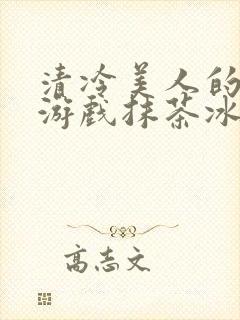 清冷美人的
游戏抹茶冰
高志文